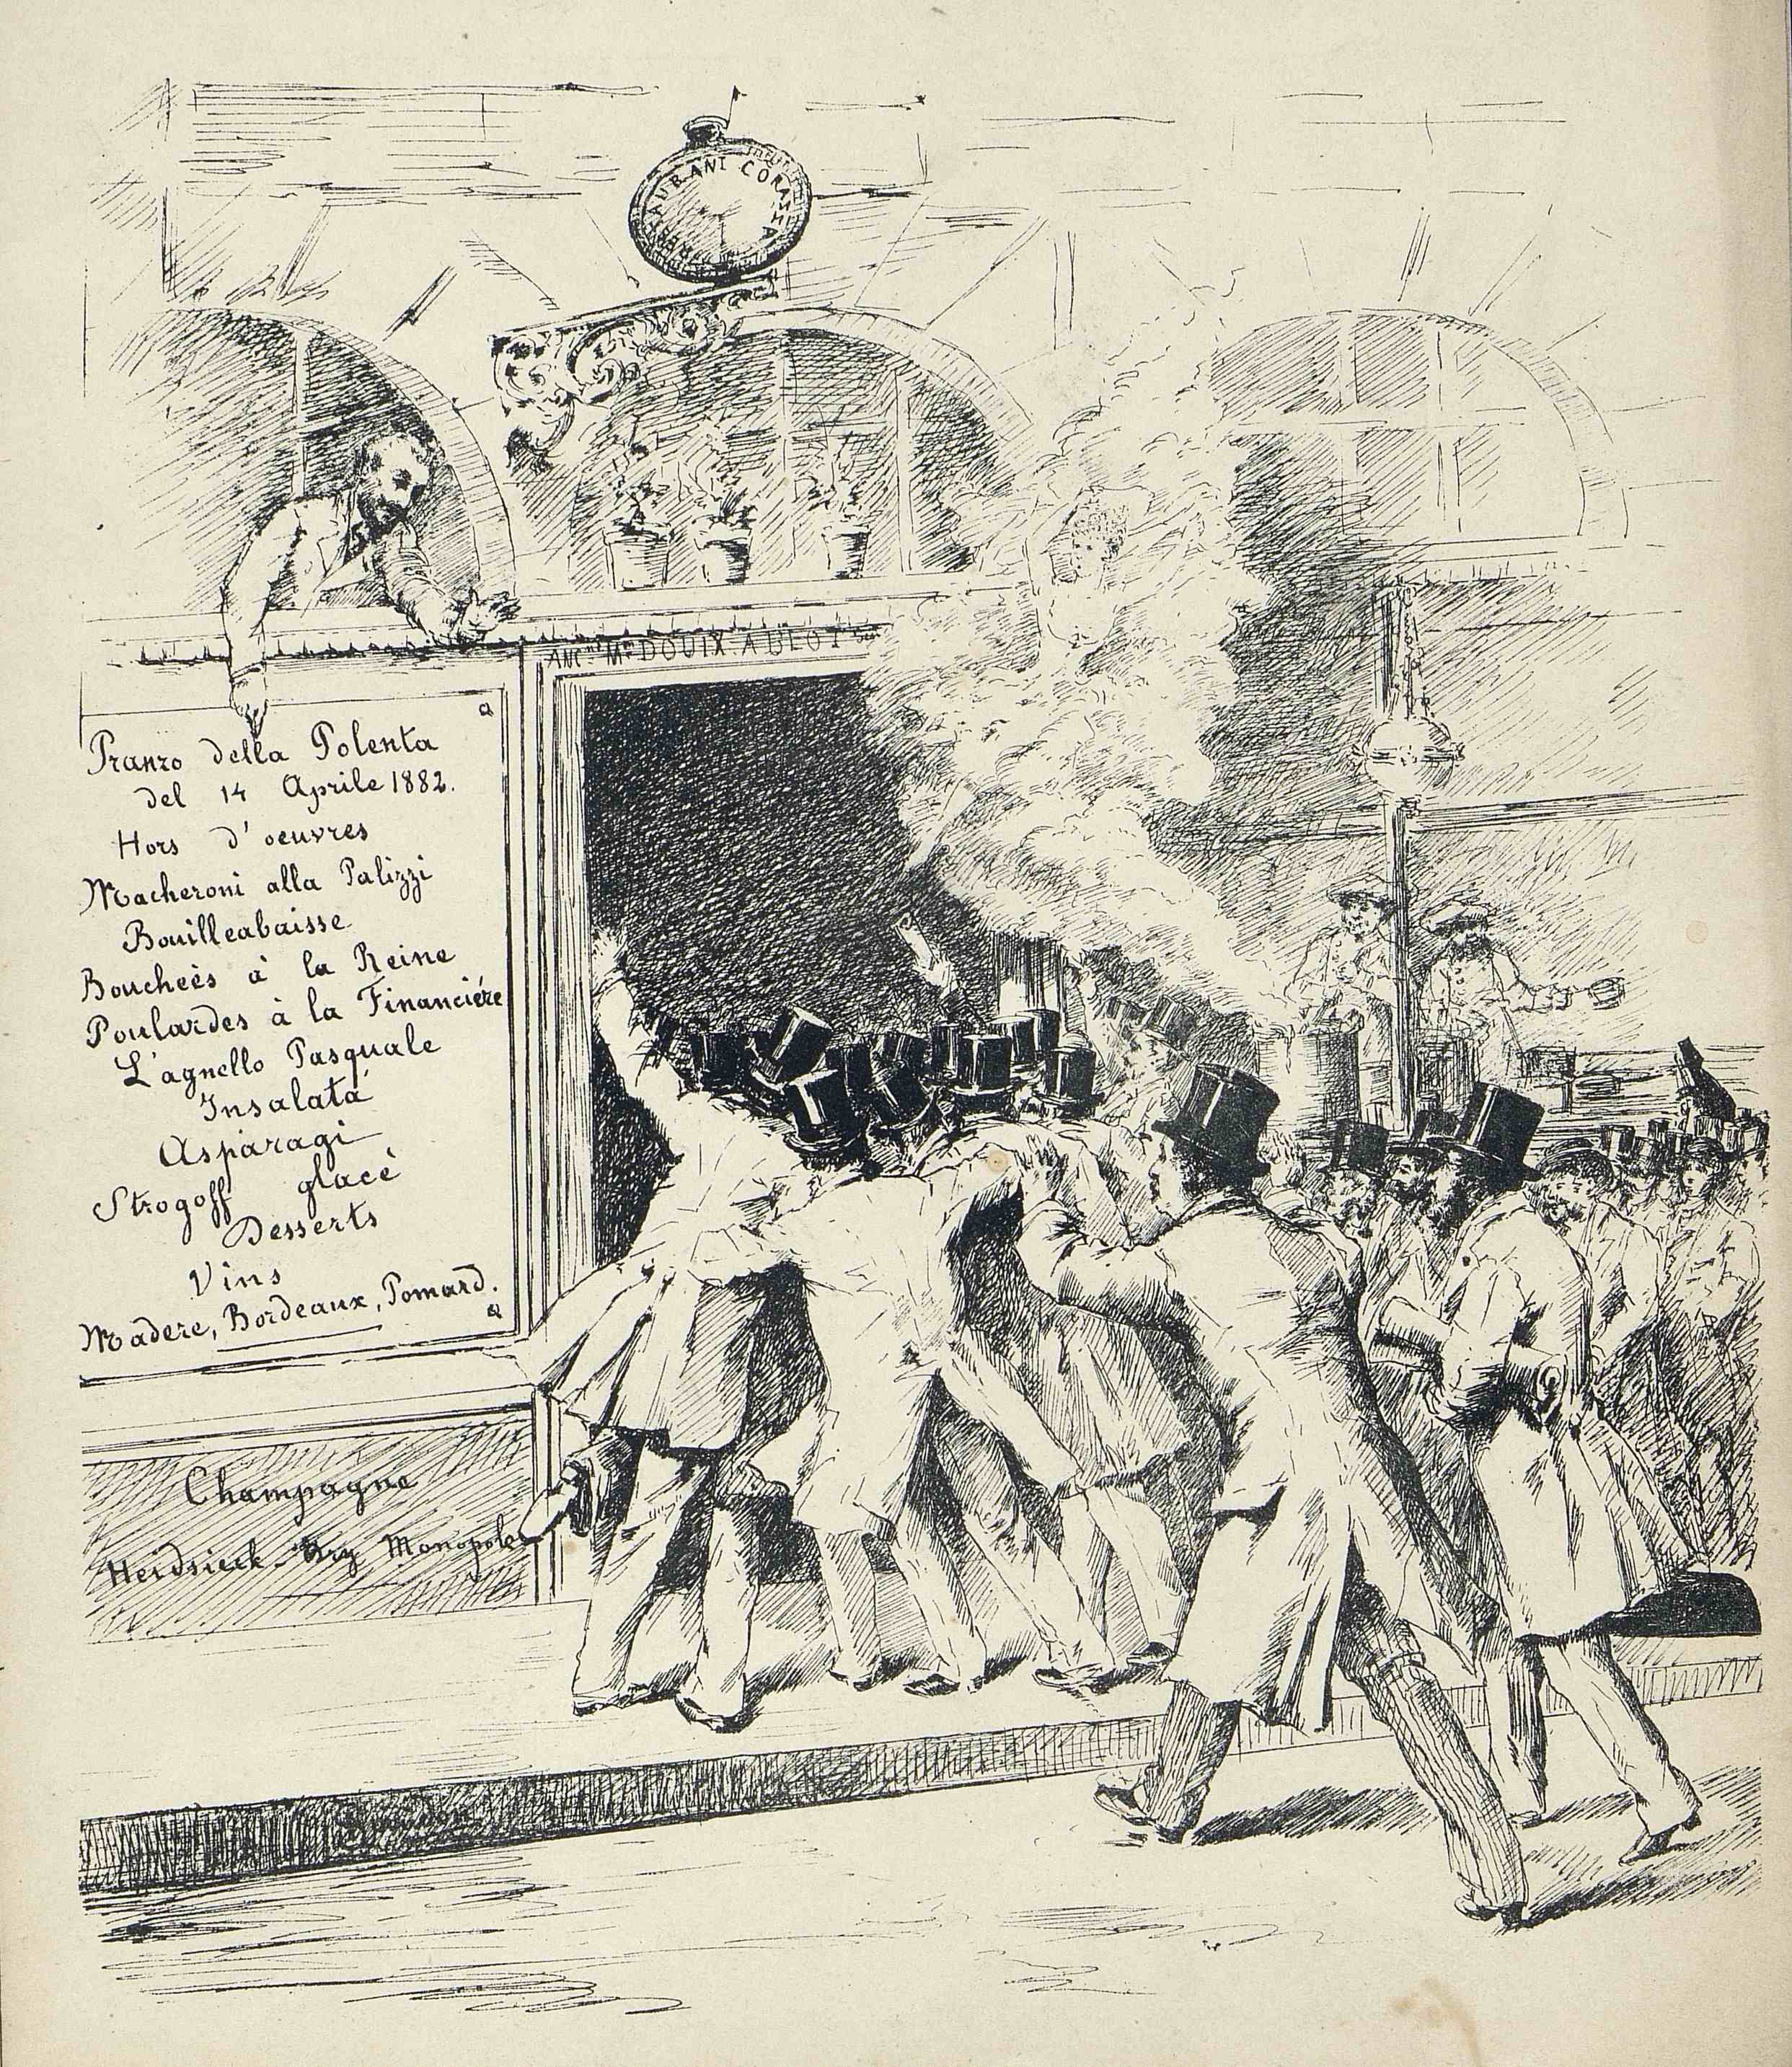 RESTAURANT CORAZZA
ANC.ne Mon DOUIX
Pranzo della Polenta
del 14 Aprile 1882.
Hors d'oeuvres
Macheroni alla Palizzi
Bouilleabaisse
Boucheès à la Reine
Poulardes à la Financiére
L'agnello Pasquale
Insalata
Asparagi
Strogoff glacè
Desserts
Vins
Madere, Bordeaux, Pomard.
Champagne
Heidsieck Dry Monopole